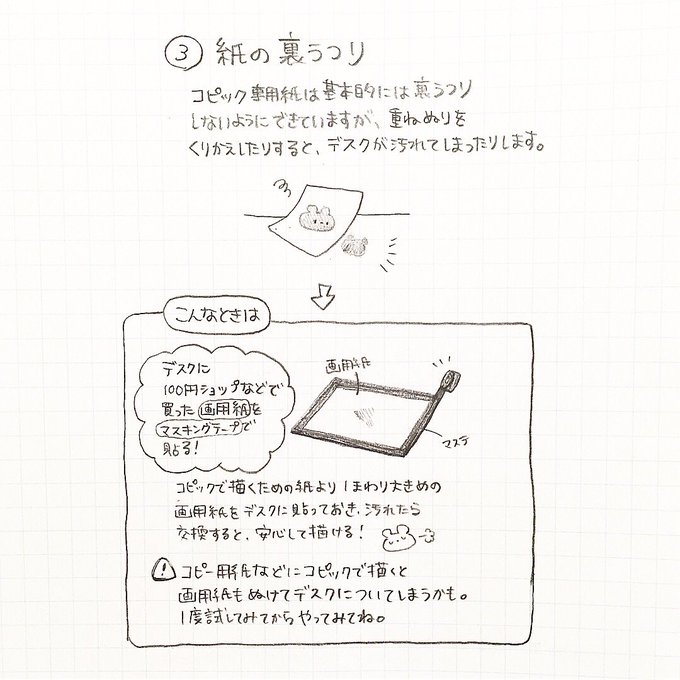 ③ 紙の裏うつり
コピック専用紙は基本的には裏うつり
しないようにできていますが、重ねぬりを
くりかえしたりすると、デスクが汚れてしまったりします。
こんなときは
デスクに
100円ショップなどで
買った画用紙を
マスキングテープで
貼る!
画用紙
マステ
コピックで描くための紙より1まわり大きめの
画用紙をデスクに貼っておき、汚れたら
交換すると、安心して描ける!
コピー用紙などにコピックで描くと
画用紙もぬけてデスクについてしまうかも。
1度試してみてからやってみてね。